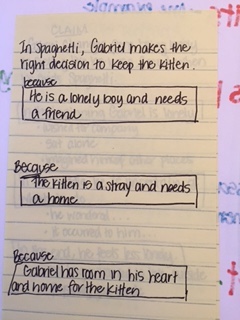 In Spaghetti, Gabriel makes the
right decision to keep the kitten.
because
He is a lonely boy and needs
a friend
Because
The kitten is a stray and needs
a home
Because
Gabriel has room in his heart
and home for the kitten